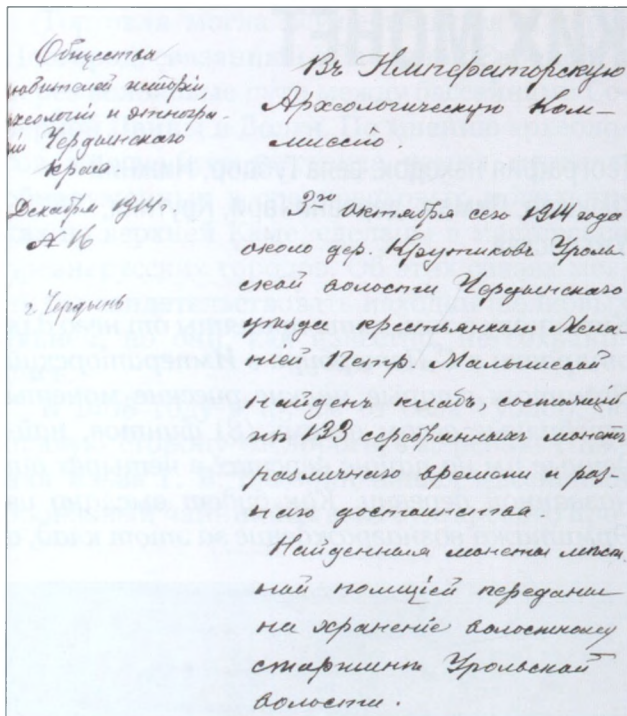 Общества
любителей исторіи,
археологіи и этногра-
фіи Чердынскаго
края.
Декабря 1914 г.
№ 16
г. Чердынь
Въ Императорскую
Археологическую Ком-
миссію.
9го октября сего 1914 года
около дер. Крутиковъ Уроль-
ской волости Чердынскаго
уѣзда крестьянкой Мела-
ніей Петр. Малышевой
найденъ кладъ, состоящій
изъ 123 серебрянныхъ монетъ
различнаго времени и раз-
наго достоинства.
Найденныя монеты мѣст-
ной полиціей переданы
на храненіе волостному
старшинѣ Урольской
волости.